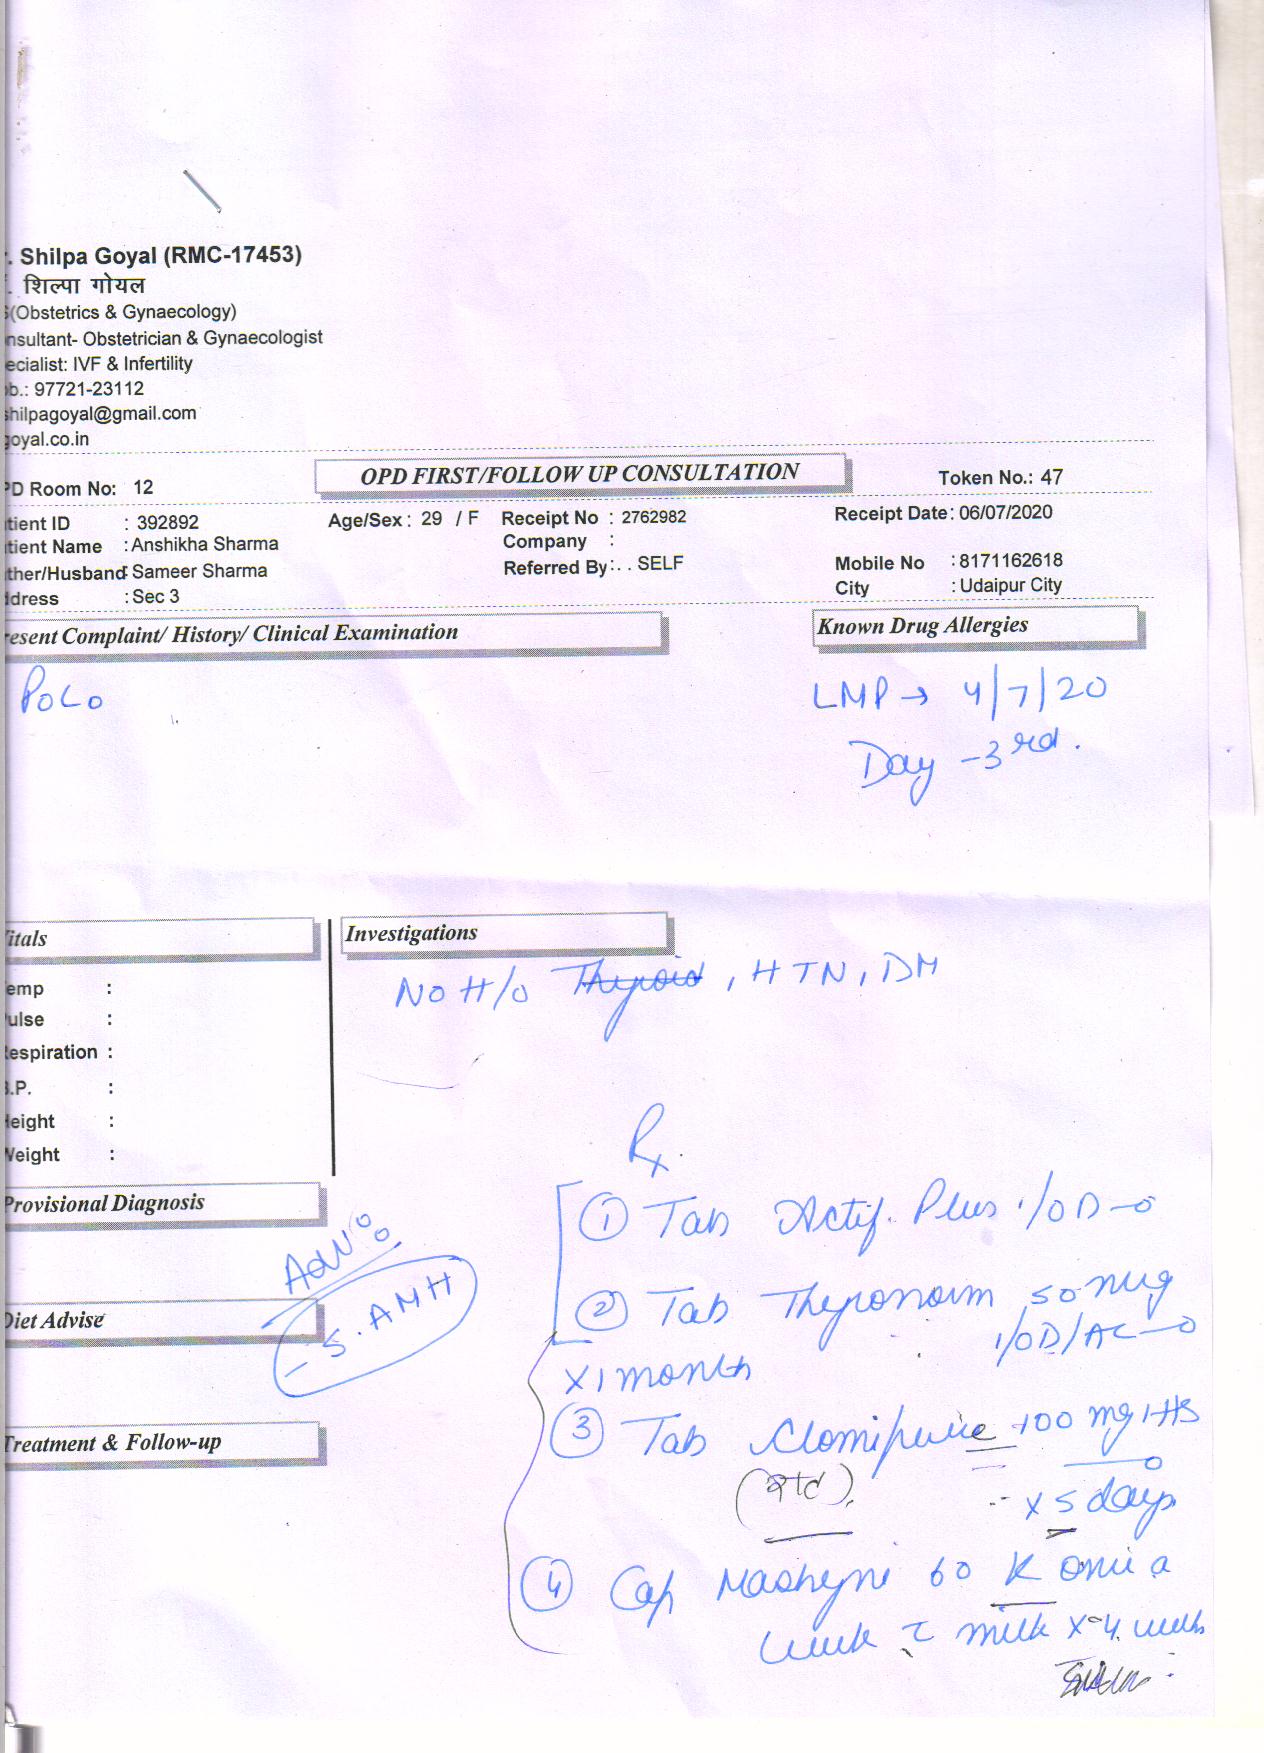 . Shilpa Goyal (RMC-17453)
. शिल्पा गोयल
(Obstetrics & Gynaecology)
nsultant- Obstetrician & Gynaecologist
ecialist: IVF & Infertility
b.: 97721-23112
shilpagoyal@gmail.com
goyal.co.in
OPD FIRST/FOLLOW UP CONSULTATION
Token No.: 47
PD Room No: 12
tient ID : 392892 Age/Sex : 29 / F Receipt No : 2762982 Receipt Date: 06/07/2020
tient Name : Anshikha Sharma Company :
ther/Husband: Sameer Sharma Referred By: . . SELF Mobile No : 8171162618
ddress : Sec 3 City : Udaipur City
resent Complaint/ History/ Clinical Examination
Known Drug Allergies
P0L0
LMP → 4/7/20
Day -3rd.
itals
Investigations
No H/o Thyroid, HTN, DM
emp :
ulse :
Respiration :
B.P. :
Height :
Weight :
Rx
Provisional Diagnosis
① Tab Actif. Plus 1/OD
Adv:
- S. AMH
Diet Advise
② Tab Thyronorm 50 mcg
1/OD/AC
x 1 month
Treatment & Follow-up
③ Tab Clomiphene 100 mg 1 HS
(रात)
x 5 days
④ Cap 60 K once a
week c milk x 4 weeks